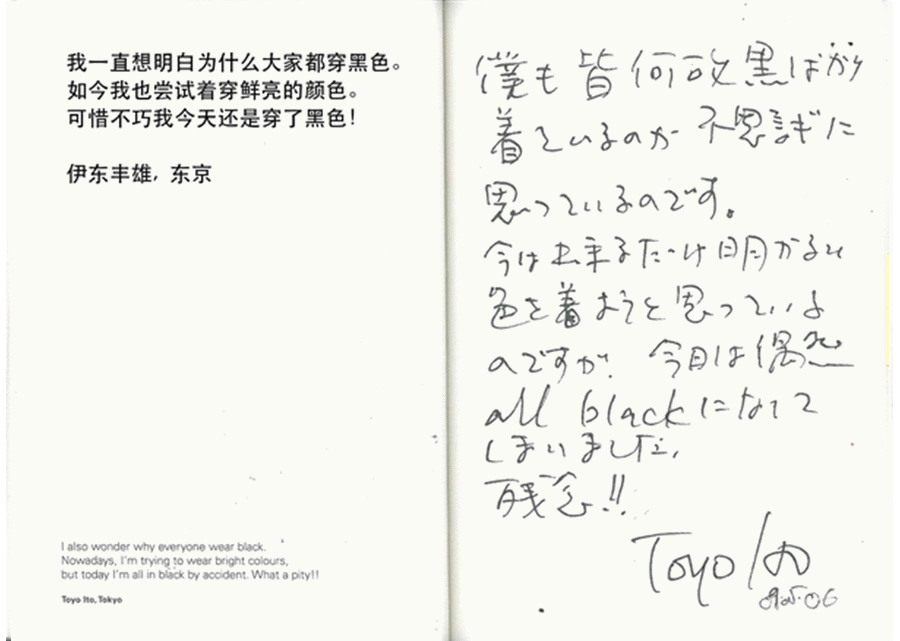 我一直想明白为什么大家都穿黑色。
如今我也尝试着穿鲜亮的颜色。
可惜不巧我今天还是穿了黑色!
伊东丰雄, 东京
I also wonder why everyone wear black.
Nowadays, I'm trying to wear bright colours,
but today I'm all in black by accident. What a pity!!
Toyo Ito, Tokyo
僕も皆何故黒ばかり
着ているのか不思議に
思っているのです。
今は出来るだけ明かるい
色を着ようと思っている
のですが、今日は偶然
all blackになって
しまいました。
残念!!
Toyo Ito